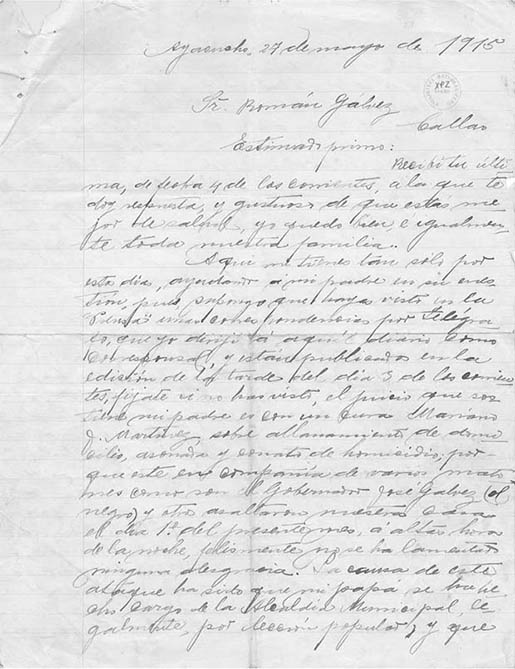 Ayacucho, 27 de mayo de 1915
Sr. Román Gálvez
Callao
Estimado primo:
Recibí tu últi
ma, de fecha 4 de los corrientes, a la que te
doy respuesta, y gustoso de que estás me
jor de salud, yo quedo bien e igualmen
te toda nuestra familia.
Aquí me tienes tan sólo por
este día, ayudando a mi padre en su cues
tión, pues supongo que hayas visto en la
"Prensa" unas correspondencias por Telégra
fo, que yo dirijí a aquél diario como
corresponsal y están publicados en la
edición de la tarde del día 3 de los corrien
tes, fíjate si no has visto, el juicio que sos
tiene mi padre es con un cura Mariano
J. Martínez, sobre allanamiento de domi
cilio, asonada y conato de homicidio, por
que este en compañía de varios mato
nes como son el Gobernador José Galvez (el
negro) y otro asaltaron nuestra casa
el día 1º del presente mes, a altas horas
de la noche, felismente no se ha lamentado
ninguna desgracia. La causa de este
ataque ha sido que mi papá, se hubi
cho cargo de la Alcaldía Municipal le
galmente, por elección popular, y que